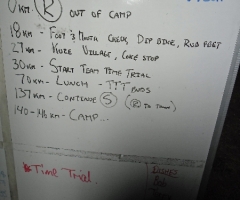 0KM (R) OUT OF CAMP
18KM - FOOT & MOUTH CHECK, DIP BIKE, RUB FEET
27KM - KUKE VILLAGE, COKE STOP
30KM - START TEAM TIME TRIAL
70KM - LUNCH - TTT ENDS
137KM - CONTINUE (S) (R) TO TOWN)
140 - KM - CAMP...
* Time Trial.